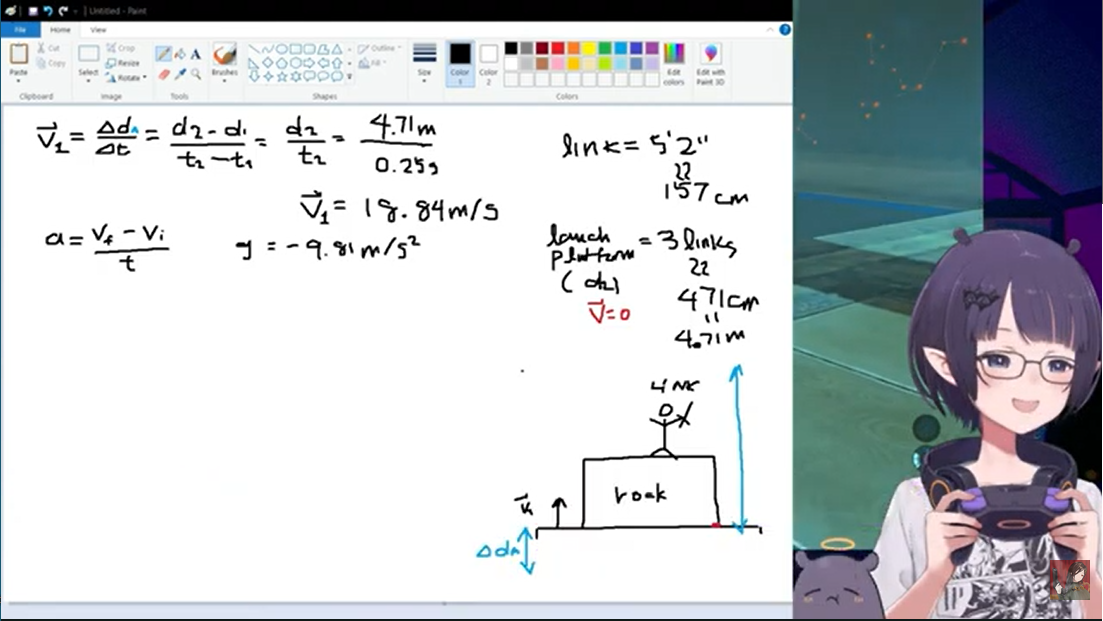 Untitled - Paint
File
Home
View
Paste
Cut
Copy
Clipboard
Select
Crop
Resize
Rotate
Image
Tools
Brushes
Shapes
Outline
Fill
Size
Color 1
Color 2
Edit colors
Edit with Paint 3D
Colors
V₁ = Δd₁/Δt = d₂ - d₁/t₂ - t₁ = d₂/t₂ = 4.71m/0.25s
V₁ = 18.84 m/s
a = Vf - Vi/t
g = -9.81 m/s²
link = 5'2"
157 cm
launch platform (d₂) = 3 links
471 cm
"
4.71 m
V=0
LINK
rock
V₁
Δd₁